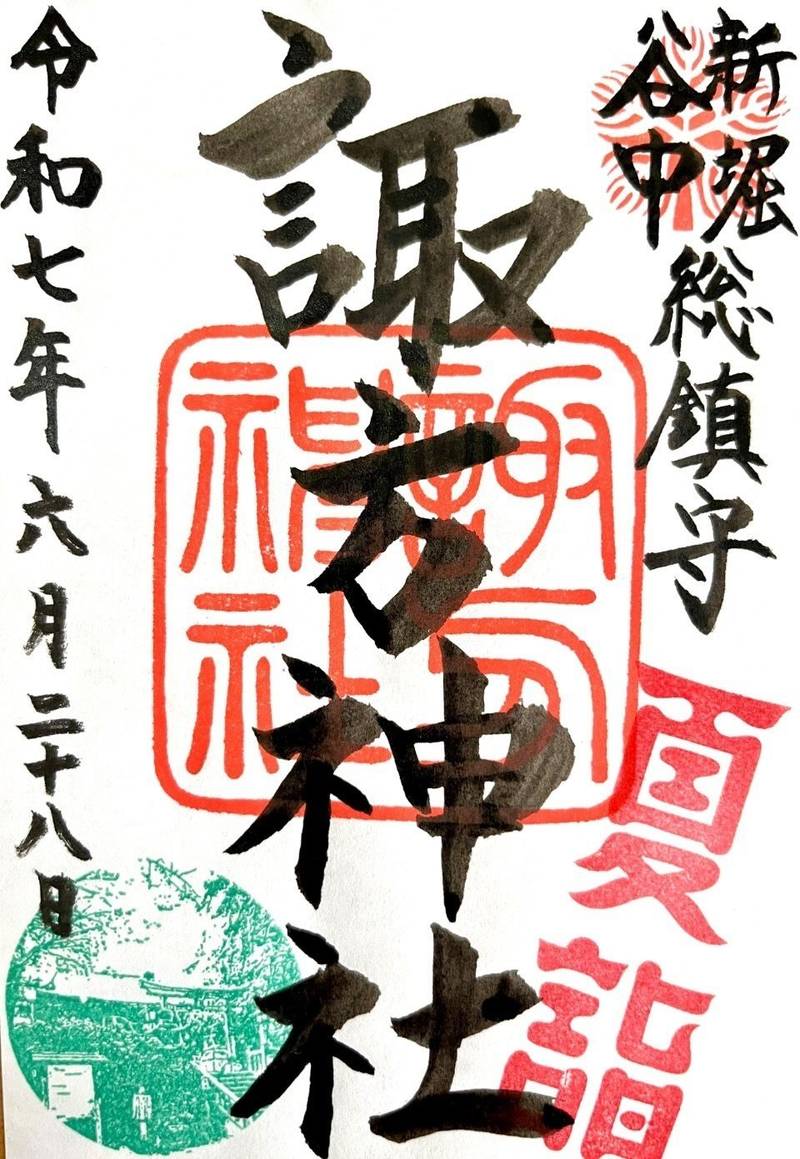 新堀
谷中
総鎮守
諏方神社
諏方神社
夏詣
令和七年六月二十八日